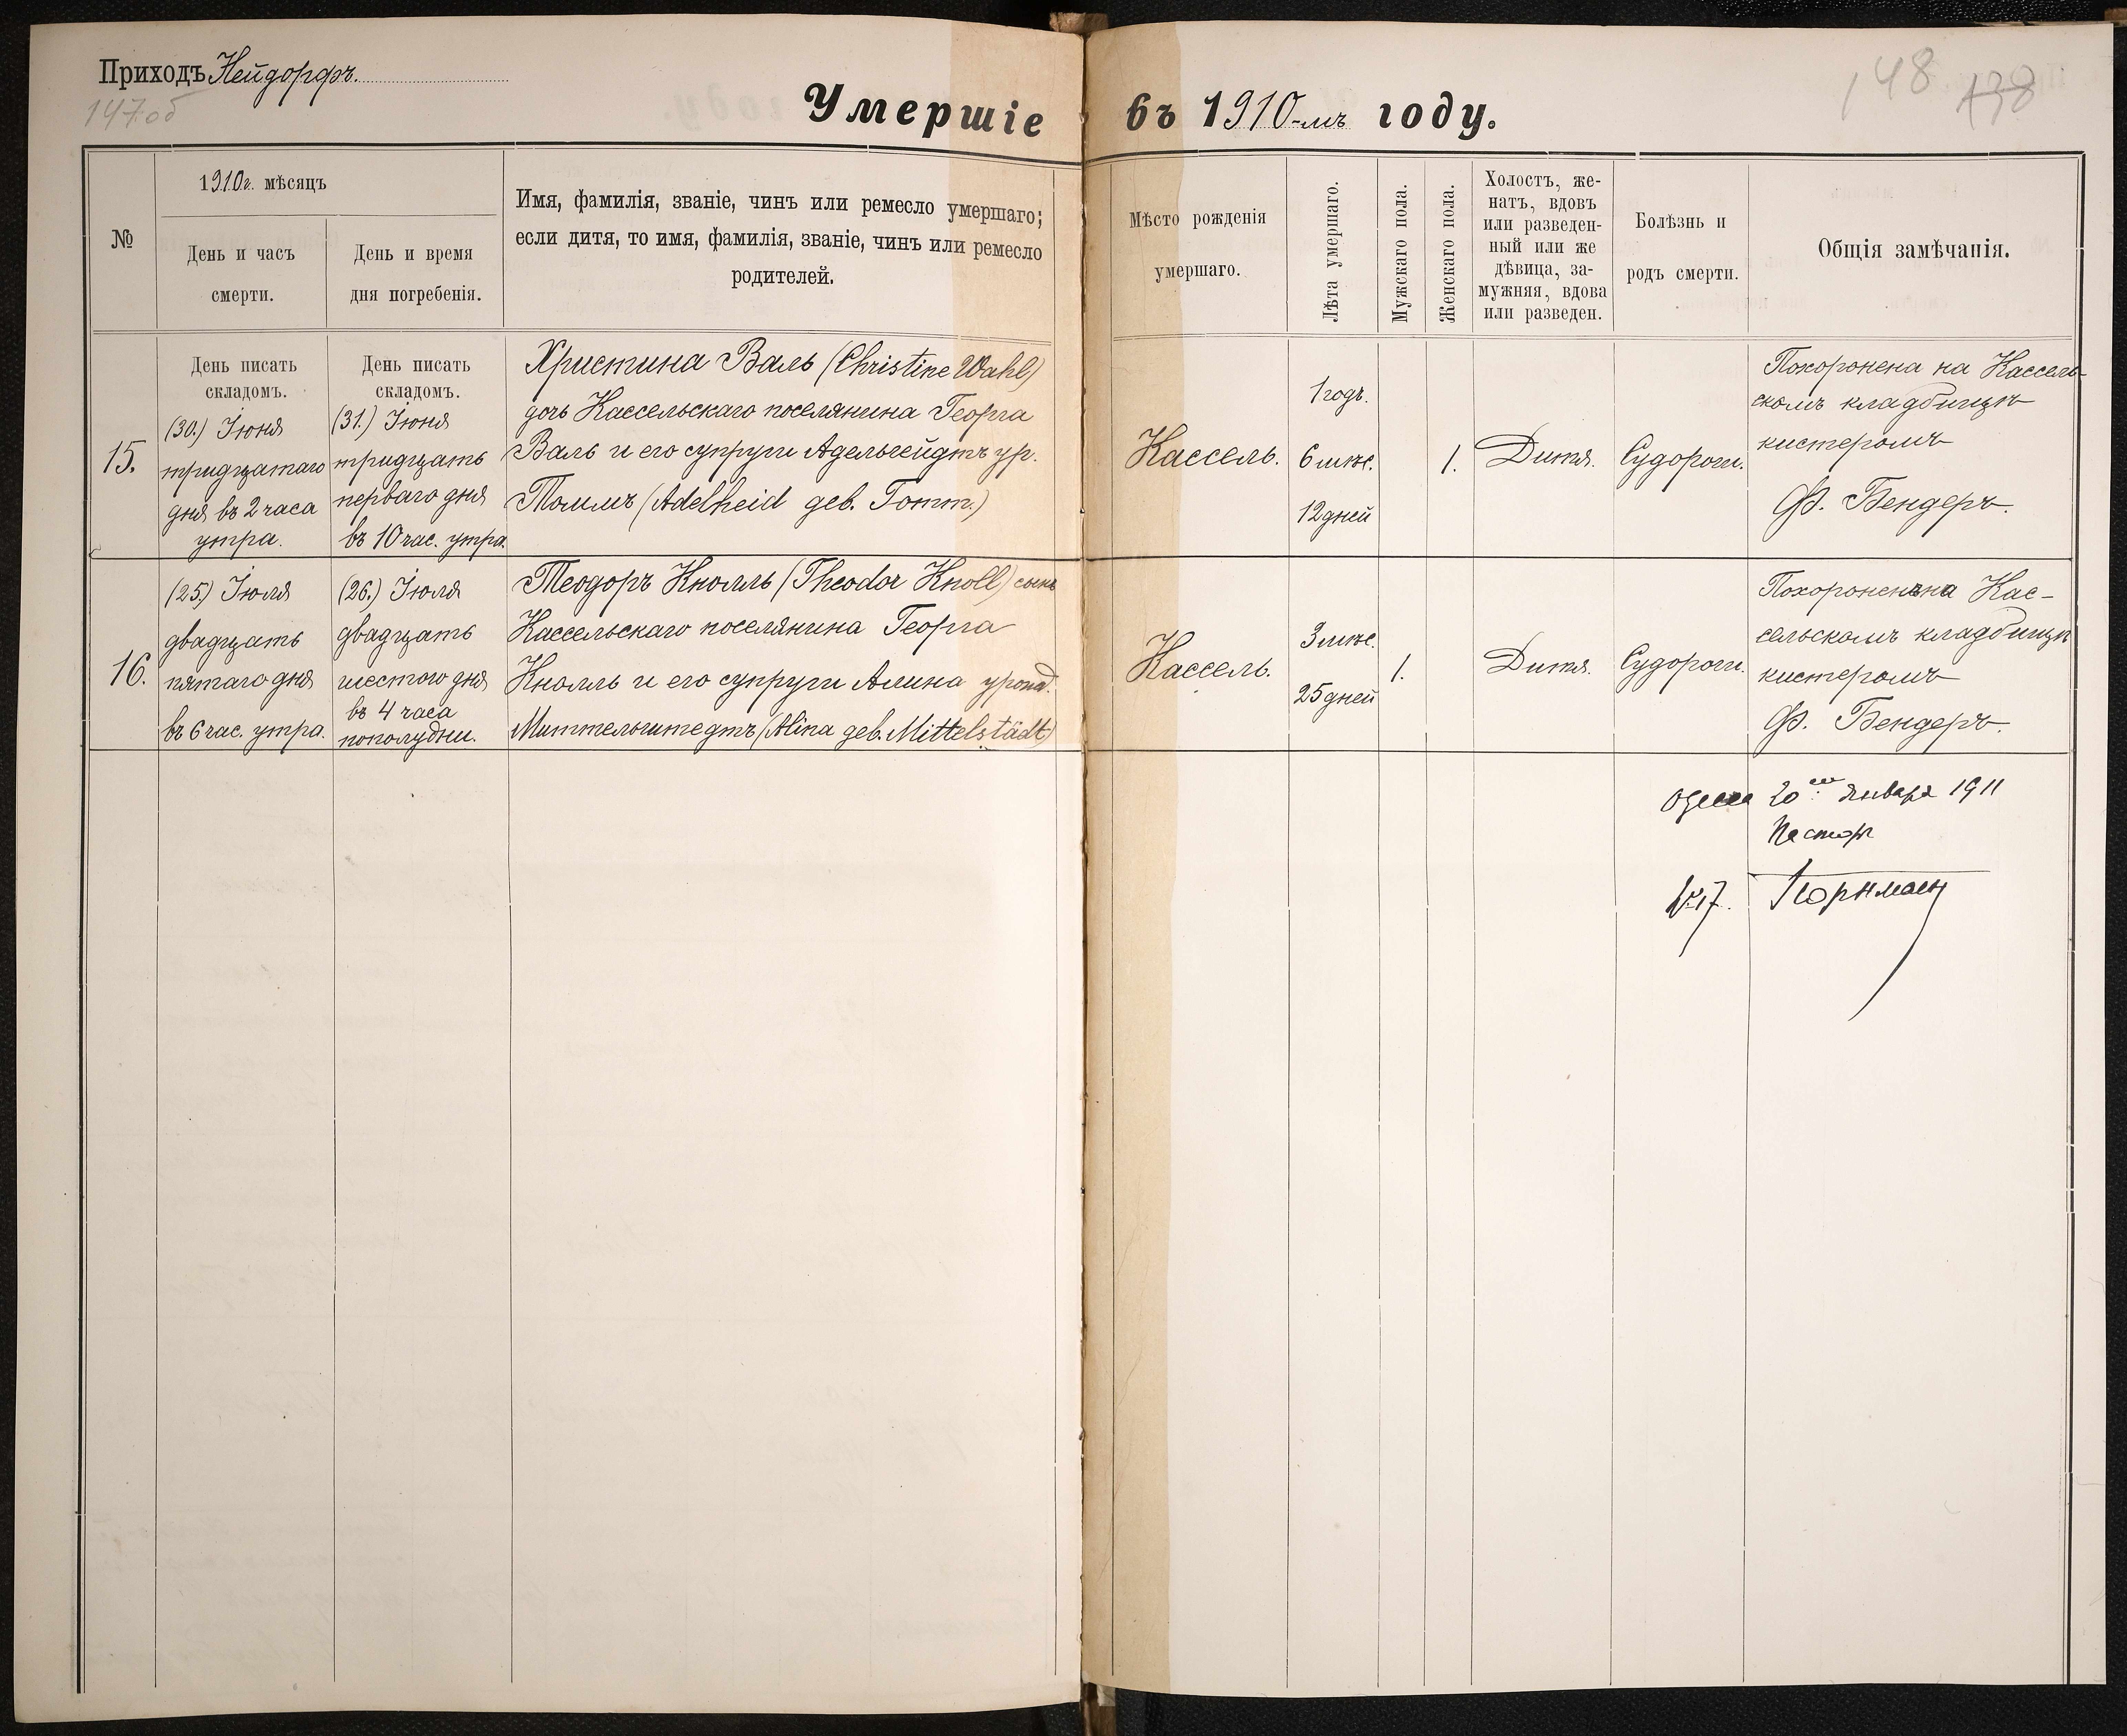 Приходъ Нейдорфъ.
147об
148 138
Умершіе въ 1910-мъ году.
№
1910г. мѣсяцъ
День и часъ
смерти.
День и время
дня погребенія.
Имя, фамилія, званіе, чинъ или ремесло умершаго;
если дитя, то имя, фамилія, званіе, чинъ или ремесло
родителей.
Мѣсто рожденія
умершаго.
Лѣта умершаго.
Мужскаго пола.
Женскаго пола.
Холостъ, же-
натъ, вдовъ
или разведен-
ный или же
дѣвица, за-
мужняя, вдова
или разведен.
Болѣзнь и
родъ смерти.
Общія замѣчанія.
15.
День писать
складомъ.
(30.) Іюня
тридцатаго
дня въ 2 часа
утра.
День писать
складомъ.
(31.) Іюня
тридцать
перваго дня
въ 10 час. утра.
Христина Валь (Christine Wahl)
дочь Кассельскаго поселянина Георга
Валь и его супруги Адельгейдтъ ур.
Томмъ (Adelheid geb. Tomm.)
Кассель.
1 годъ.
6 мѣс.
12 дней
1.
Дитя.
Судороги.
Похоронена на Кассель-
скомъ кладбищѣ
кистеромъ
Ф. Бендеръ.
16.
(25.) Іюля
двадцать
пятаго дня
въ 6 час. утра.
(26.) Іюля
двадцать
шестого дня
въ 4 часа
пополудни.
Теодоръ Кнолль (Theodor Knoll) сынъ
Кассельскаго поселянина Георга
Кнолль и его супруги Алина урожд.
Миттельштедтъ (Alina geb. Mittelstädt)
Кассель.
3 мѣс.
25 дней
1.
Дитя.
Судороги.
Похороненъ на Кас-
сельскомъ кладбищѣ
кистеромъ
Ф. Бендеръ.
Одесса 20го Января 1911
Пасторъ
№17.